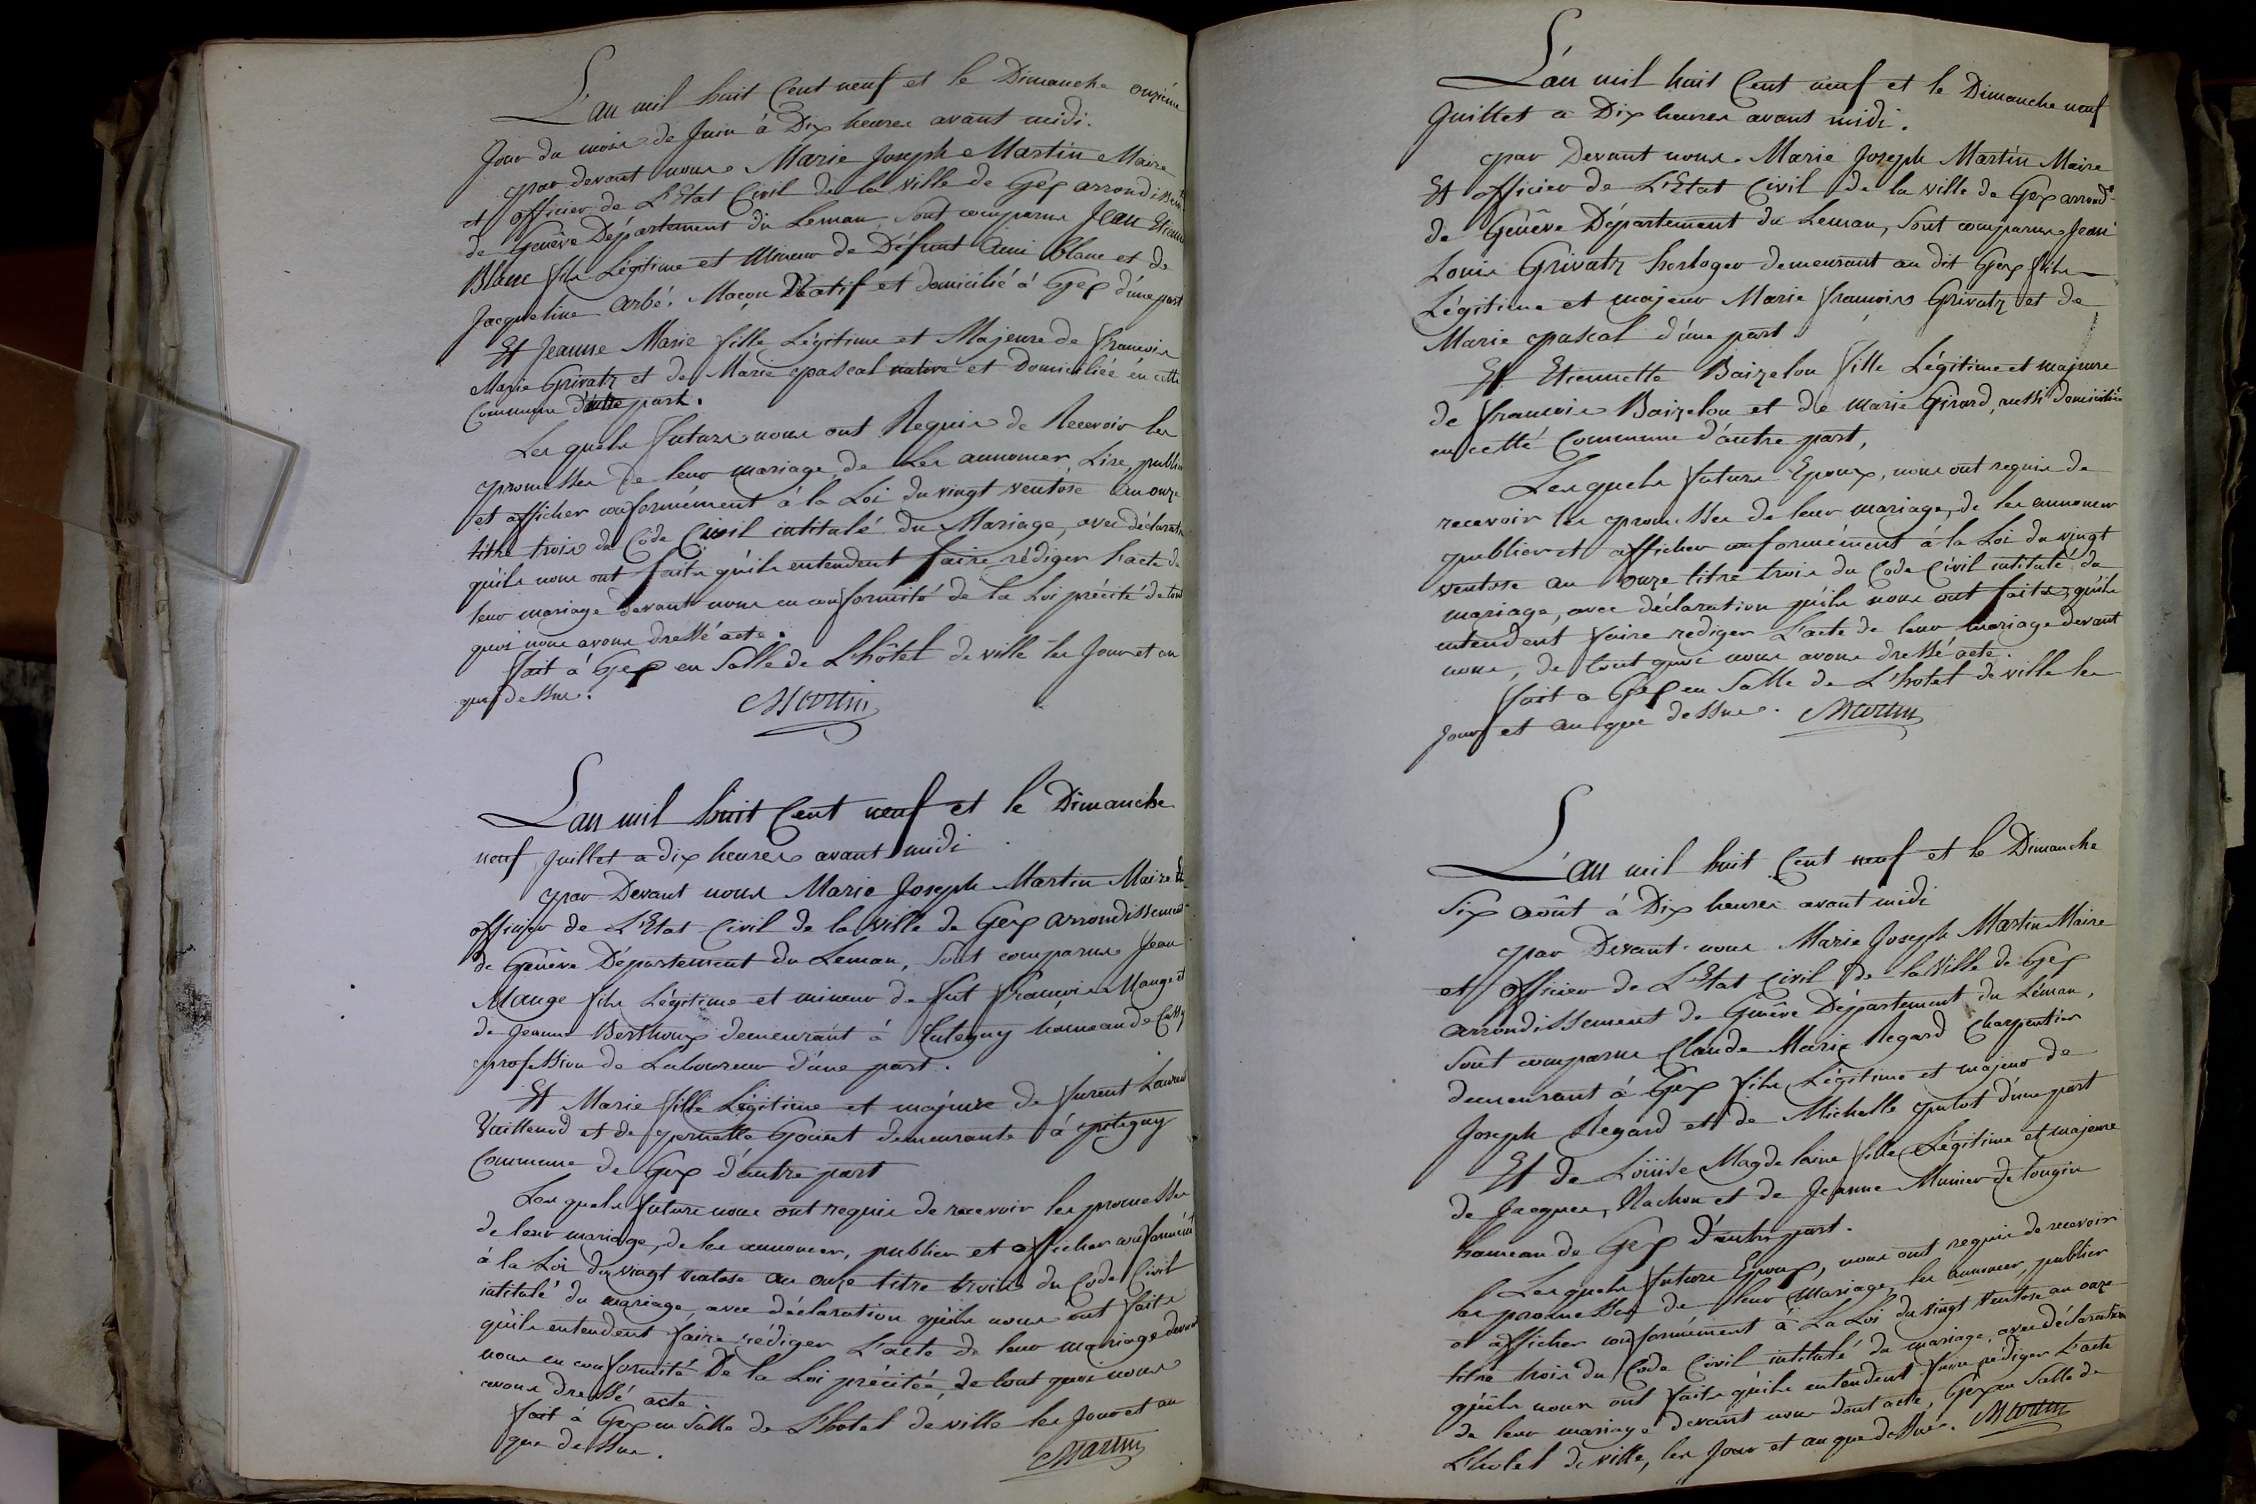 L'an mil huit Cent neuf et le Dimanche onzième
Jour du mois de Juin à Dix heures avant midi.
par devant nous Marie Joseph Martin Maire
et officier de L'Etat Civil de la ville de Gex arrondissem.t
de Genève Département du Leman, Sont comparus Jean Etienne
Blanc fils Légitime et Mineur de Défunt Aimé Blanc et de
Jacqueline Arbé. Maçon Natif et domicilié à Gex d'une part
Et Jeanne Marie fille Légitime et Majeure de françois
Marie Grivatz et de Marie pascal native et Domiciliée en cette
Commune d'autre part.
Lesquels futurs nous ont Requis de Recevoir les
promesses de leur mariage, de Les annoncer, Lire, publier
et afficher conformément à la Loi du vingt ventose an onze
titre trois du Code Civil intitulé du Mariage, avec déclaration
qu'ils nous ont faite qu'ils entendent faire rédiger L'acte de
leur mariage devant nous en conformité de la Loi précité de tout
quoi nous avons dressé acte.
fait à Gex en Salle de L'hôtel de ville les Jour et an
que dessus. Martin
L'an mil huit Cent neuf et le Dimanche
neuf Juillet a dix heures avant midi
par Devant nous Marie Joseph Martin Maire Et
officier de L'Etat Civil de la ville de Gex arrondissement
de Genève Département du Leman, Sont comparus Jean
Mange fils Légitime et mineur de fut françois Mange et
de Jeanne Berthoux demeurant à hameau de Cessy
profession de Laboureur d'une part.
Et Marie fille Légitime et majeure de furent Laurent
Vaillenod et de pernette Goüet demeurante à pitegny
Commune de Gex d'autre part
Lesquels futurs nous ont requis de recevoir les promesses
de leur mariage, de les annoncer, publier et afficher conformément
à la Loi du vingt ventose an onze titre trois du Code Civil
intitulé du mariage avec déclaration qu'ils nous ont faite
qu'ils entendent faire rédiger L'acte de leur mariage devant
nous en conformité De la Loi précitée, de tout quoi nous
avons dressé acte.
fait à Gex en Salle de L'hotel de ville les Jour et an
que dessus. Martin
L'an mil huit Cent neuf et le Dimanche neuf
Juillet a Dix heures avant midi.
par Devant nous Marie Joseph Martin Maire
Et officier de L'Etat Civil de la ville de Gex arrond.t
de Genève Département du Leman, Sont comparus Jean
Louis Grivatz horloger demeurant au dit Gex fils
Légitime et majeur Marie françois Grivatz et de
Marie pascal d'une part
Et Etiennette Baizelon fille Légitime et majeure
de francois Baizelon et de marie Girard, aussi domiciliée
en cette Commune d'autre part,
Lesquels futurs Epoux, nous ont requis de
recevoir les promesses de leur mariage, de les annoncer
publier et afficher conformément à la Loi du vingt
ventose an onze titre trois du Code Civil intitulé du
mariage, avec déclaration qu'ils nous ont faite, qu'ils
entendent faire rediger L'acte de leur mariage devant
nous, de tout quoi nous avons dressé acte.
fait a Gex en Salle de L'hotel de ville les
Jour et an que dessus. Martin
L'an mil huit Cent neuf et le Dimanche
Six août à Dix heures avant midi
par Devant nous Marie Joseph Martin Maire
et officier de L'Etat Civil de la Ville de Gex
arrondissement de Genève Département du Léman,
Sont comparus Claude Marie Regard Charpentier
demeurant à Gex fils Légitime et majeur de
Joseph Regard et de Michelle putot d'une part
Et de Loüise Magdelaine fille Légitime et majeure
de Jacques Nachon et de Jeanne Munier de tougin
hameau de Gex d'autre part.
Lesquels futurs Epoux, nous ont requis de recevoir
les promesses de leur Mariage, les annoncer, publier
et afficher conformément à La Loi du vingt Ventose an onze
titre trois du Code Civil intitulé du mariage, avec déclaration
qu'ils nous ont faite qu'ils entendent faire rédiger L'acte
de leur mariage devant nous dont acte, Gex en Salle de
L'hotel de ville, les Jour et an que dessus. Martin